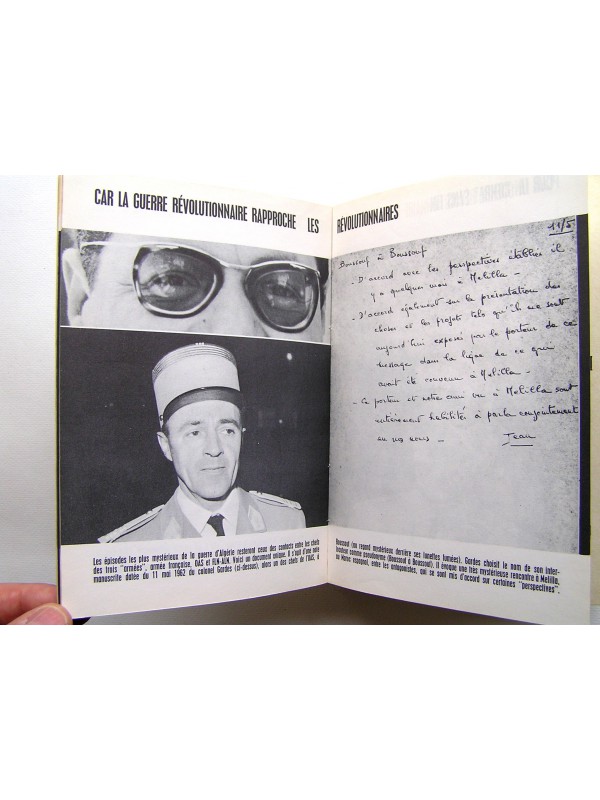 CAR LA GUERRE RÉVOLUTIONNAIRE RAPPROCHE LES RÉVOLUTIONNAIRES
Les épisodes les plus mystérieux de la guerre d'Algérie resteront ceux des contacts entre les chefs
des trois "armées", armée française, OAS et FLN-ALN. Voici un document unique. Il s'agit d'une note
manuscrite datée du 11 mai 1962 du colonel Gardes (ci-dessus), alors un des chefs de l'OAS, à
11/5
Boussouf à Boussouf
- D'accord avec les perspectives établies il
y a quelques mois à Melilla -
- D'accord également sur la présentation des
choses et les projets tels qu'il me sont
aujourd'hui exposés par le porteur de ce
message dans la ligne de ce qui
avait été convenu à Melilla -
- Ce porteur et notre ami vu à Melilla sont
entièrement habilités à parler conjointement
en nos noms -
Jean
Boussouf (au regard mystérieux derrière ses lunettes fumées). Gardes choisit le nom de son inter-
locuteur comme pseudonyme (Boussouf à Boussouf). Il évoque une très mystérieuse rencontre à Melilla,
au Maroc espagnol, entre les antagonistes, qui se sont mis d'accord sur certaines "perspectives".